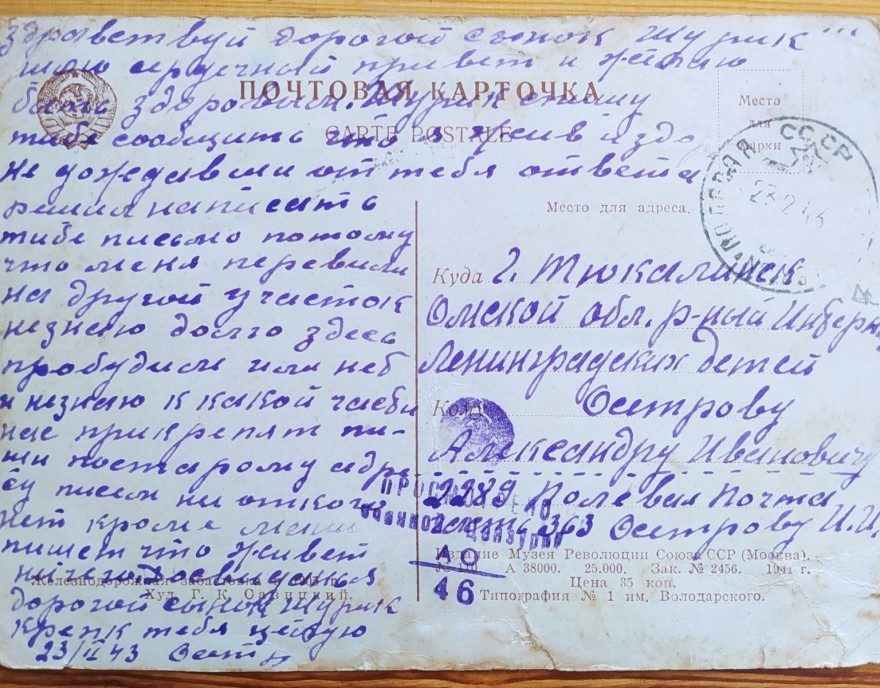 здравствуй дорогой сынок Шурик
шлю сердечный привет и желаю
ПОЧТОВАЯ КАРТОЧКА
быть здоровым. Шурик спешу
CARTE POSTALE
тибе сообщить что я жив и здо
не дождавши от тебя ответа
решил написать
тибе письмо потому
что меня перевили
на другой участок
незнаю долго здесь
пробудим или неб
и незнаю к какой части
нас прикрепят пи-
ши постарому адре
су писем ни откого
нет кроме мамы
пишет что живет
ничего досвиданья
дорогой сынок Шурик
крепк тебя цылую
23/II 43 Осетр
Место
для
марки
СССР
ПОЛЕВАЯ
Место для адреса.
Куда г. Тюкалинск
Омской обл. р-ный Интерн
Ленинградских детей
Кому Осетрову
Александру Ивановичу
2289 Полевая Почта
часть 363 Осетрову И.И.
ПРОСМОТРЕНО
Военной Цензурой
46
Железнодорожная забастовка
Худ. Г. К. Савицкий.
Издание Музея Революции Союза ССР (Москва).
А 38000. 25.000. Зак. № 2456. 1941 г.
Цена 35 коп.
Типография № 1 им. Володарского.